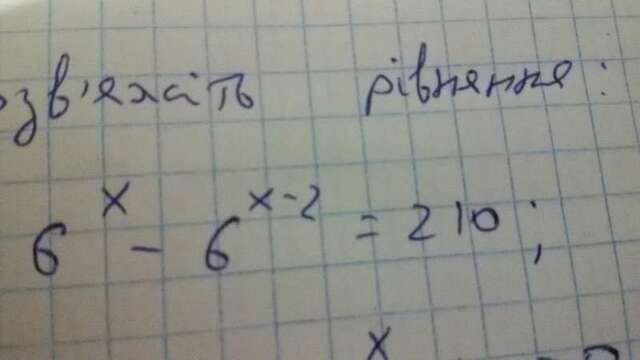 озв'яжіть рівняння:
6^x - 6^(x-2) = 210;
x